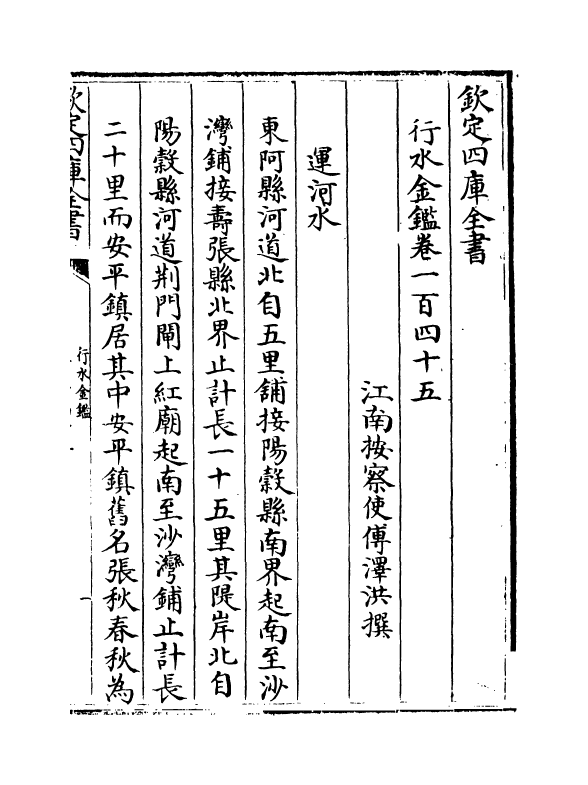 欽定四庫全書
行水金鑑卷一百四十五
江南按察使傅澤洪撰
運河水
東阿縣河道北自五里舖接陽穀縣南界起南至沙
灣鋪接壽張縣北界止計長一十五里其隄岸北自
陽穀縣河道荆門閘上紅廟起南至沙灣鋪止計長
二十里而安平鎮居其中安平鎮舊名張秋春秋為
欽定四庫全書
行水金鑑
一